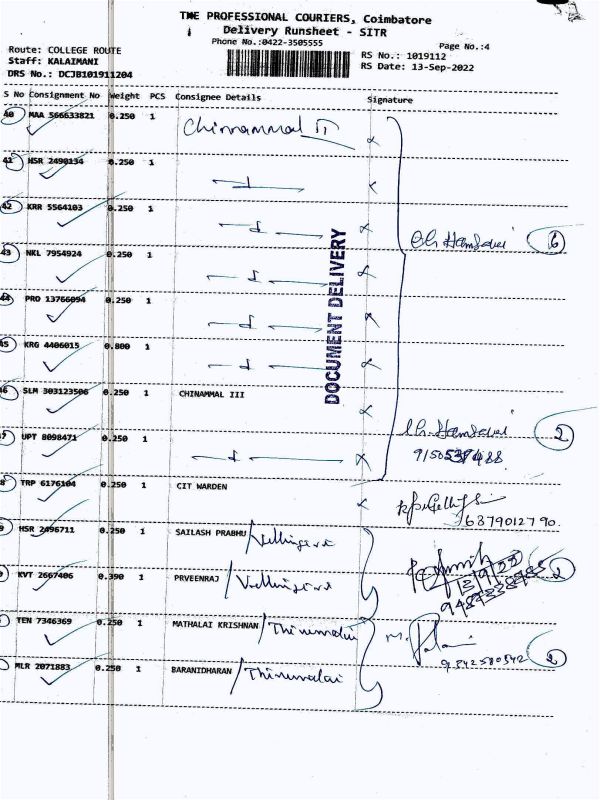 THE PROFESSIONAL COURIERS, Coimbatore
Delivery Runsheet - SITR
Phone No.:0422-3505555
Page No.:4
Route: COLLEGE ROUTE
Staff: KALAIMANI
DRS No.: DCJB101911204
RS No.: 1019112
RS Date: 13-Sep-2022
S No Consignment No Weight PCS Consignee Details Signature
40 MAA 566633821 0.250 1 Chinnammal II
41 HSR 2490134 0.250 1
42 KRR 5564103 0.250 1
6
43 NKL 7954924 0.250 1
44 PRO 13766094 0.250 1
45 KRG 4406015 0.800 1
DOCUMENT DELIVERY
46 SLM 303123506 0.250 1 CHINAMMAL III
47 UPT 8098471 0.250 1
2
48 TRP 6176104 0.250 1 CIT WARDEN
6879012790
9 HSR 2496711 0.250 1 SAILASH PRABHU / Vellingiri
0 KVT 2667406 0.390 1 PRVEENRAJ / Vellingiri
13/9/22
2
TEN 7346369 0.250 1 MATHALAI KRISHNAN / Thirumalai
M.
9842580542
2
MLR 2071883 0.250 1 BARANIDHARAN / Thirumalai